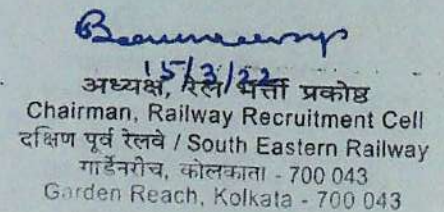 15/3/22
अध्यक्ष, रेल भर्ती प्रकोष्ठ
Chairman, Railway Recruitment Cell
दक्षिण पूर्व रेलवे / South Eastern Railway
गार्डेनरीच, कोलकाता - 700 043
Garden Reach, Kolkata - 700 043